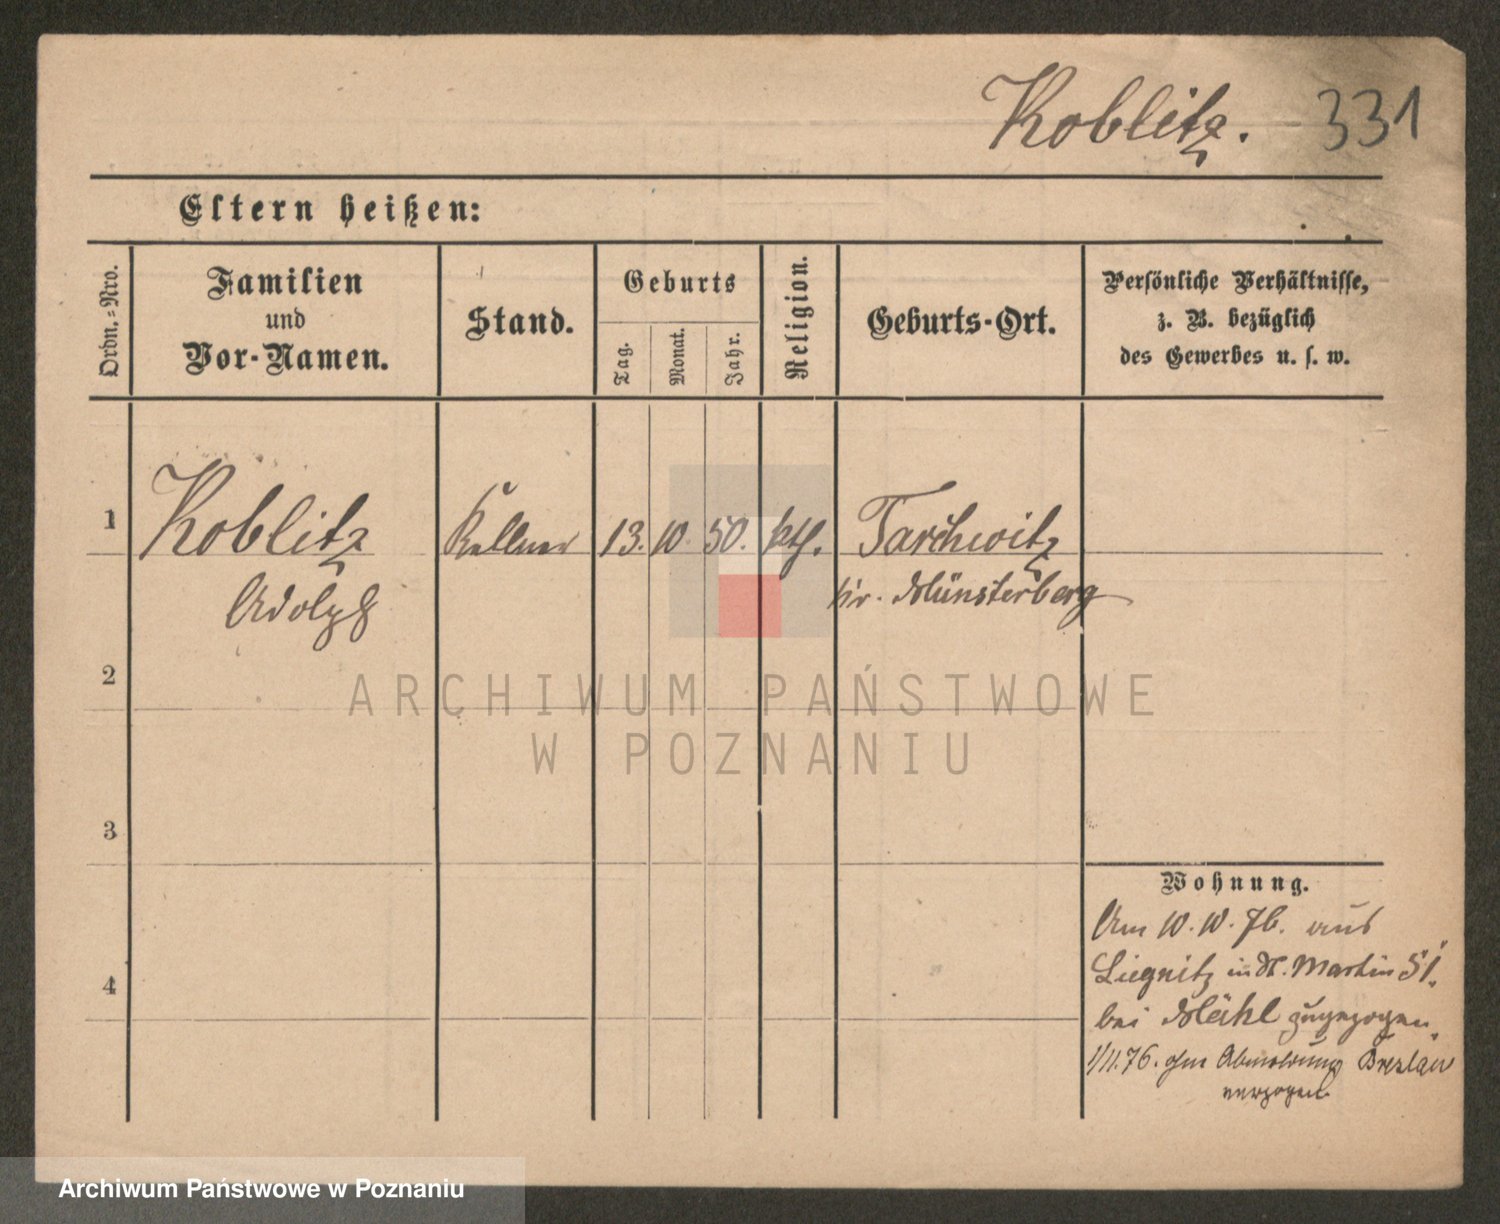 Koblitz. 331
Eltern heißen:
Ordn.=Nro.
Familien
und
Vor-Namen.
Stand.
Geburts
Tag.
Monat.
Jahr.
Religion.
Geburts-Ort.
Persönliche Verhältnisse,
z. B. bezüglich
des Gewerbes u. s. w.
1 Koblitz Kellner 13. 10. 50. kth. Tarchwitz
Adolph Kr. Münsterberg
2
ARCHIWUM PAŃSTWOWE
W POZNANIU
3
Wohnung.
Am 10. 10. 76. aus
Liegnitz in St. Martin 51.
4
bei zugezogen.
1/11.76. ohne Abmeldung Breslau
verzogen.
Archiwum Państwowe w Poznaniu